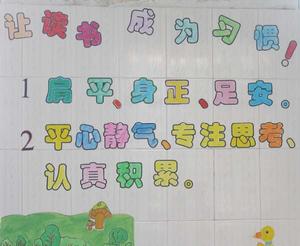 让读书 成为习惯!
1 肩平、身正、足安。
2 平心静气、专注思考、
认真积累。